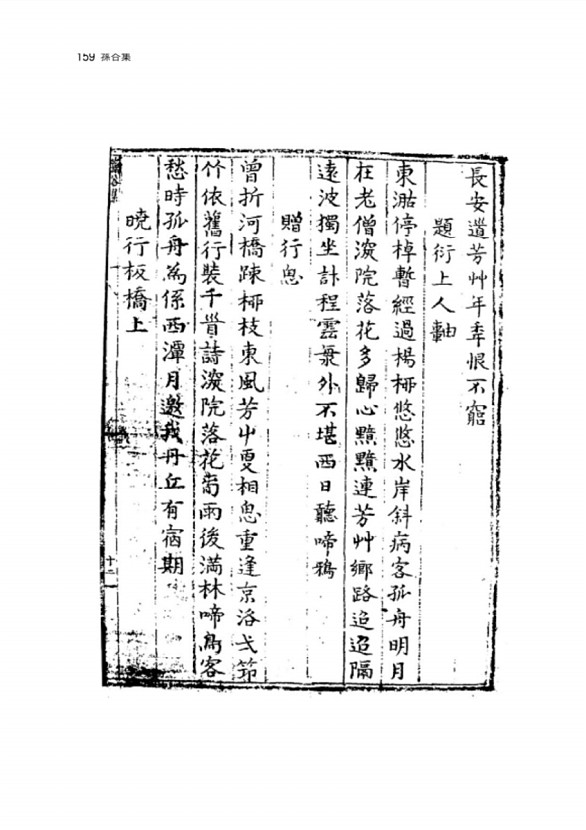 159 孫合集
長安道芳艸年年恨不窮
題衍上人軸
東湖停棹暫經過楊柳悠悠水岸斜病客孤舟明月
在老僧深院落花多歸心黯黯連芳艸鄉路迢迢隔
遠波獨坐計程雲氣外不堪西日聽啼鴉
贈行思
曾折河橋踈柳枝東風芳艸更相思重逢京洛弌笻
竹依舊行裝千首詩深院落花雨後滿林啼鳥客
愁時孤舟爲係西潭月邀我丹丘有宿期
曉行板橋上